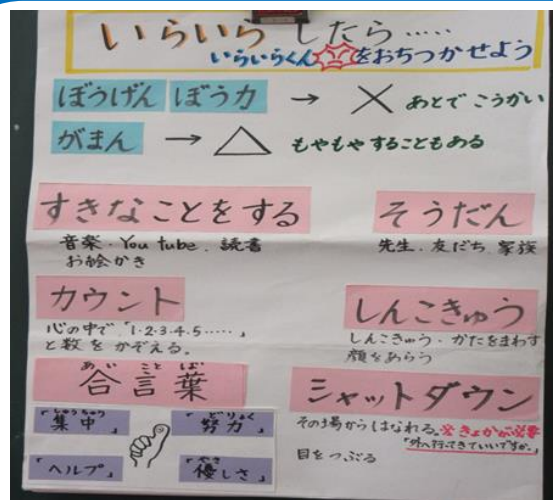 いらいら したら.....
いらいらくん をおちつかせよう
ぼうげん ぼう力 → × あとで こうかい
がまん → △ もやもや することもある
すきなことをする
音楽・You tube・読書
お絵かき
そうだん
先生・友だち・家族
カウント
心の中で「1・2・3・4・5……」
と数をかぞえる。
しんこきゅう
しんこきゅう・かたをまわす
顔をあらう
あいことば
合言葉
「集中」
しゅうちゅう
「努力」
どりょく
「ヘルプ」
「優しさ」
やさ
シャットダウン
その場からはなれる。※きょかが必要
「外へ行ってきていいですか。」
目をつぶる